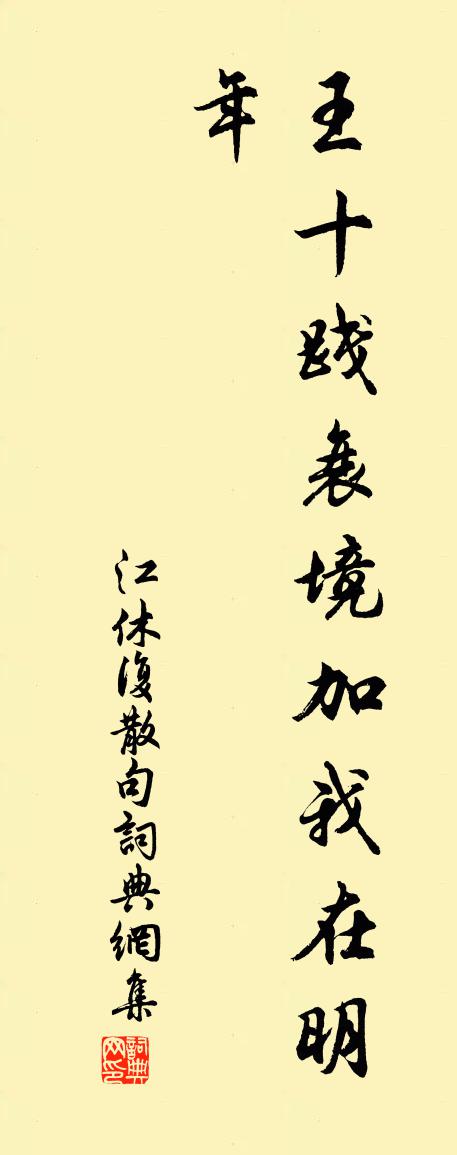 五十踐衰境加我在明
年
江休復散句詞典網集
詞典
网印